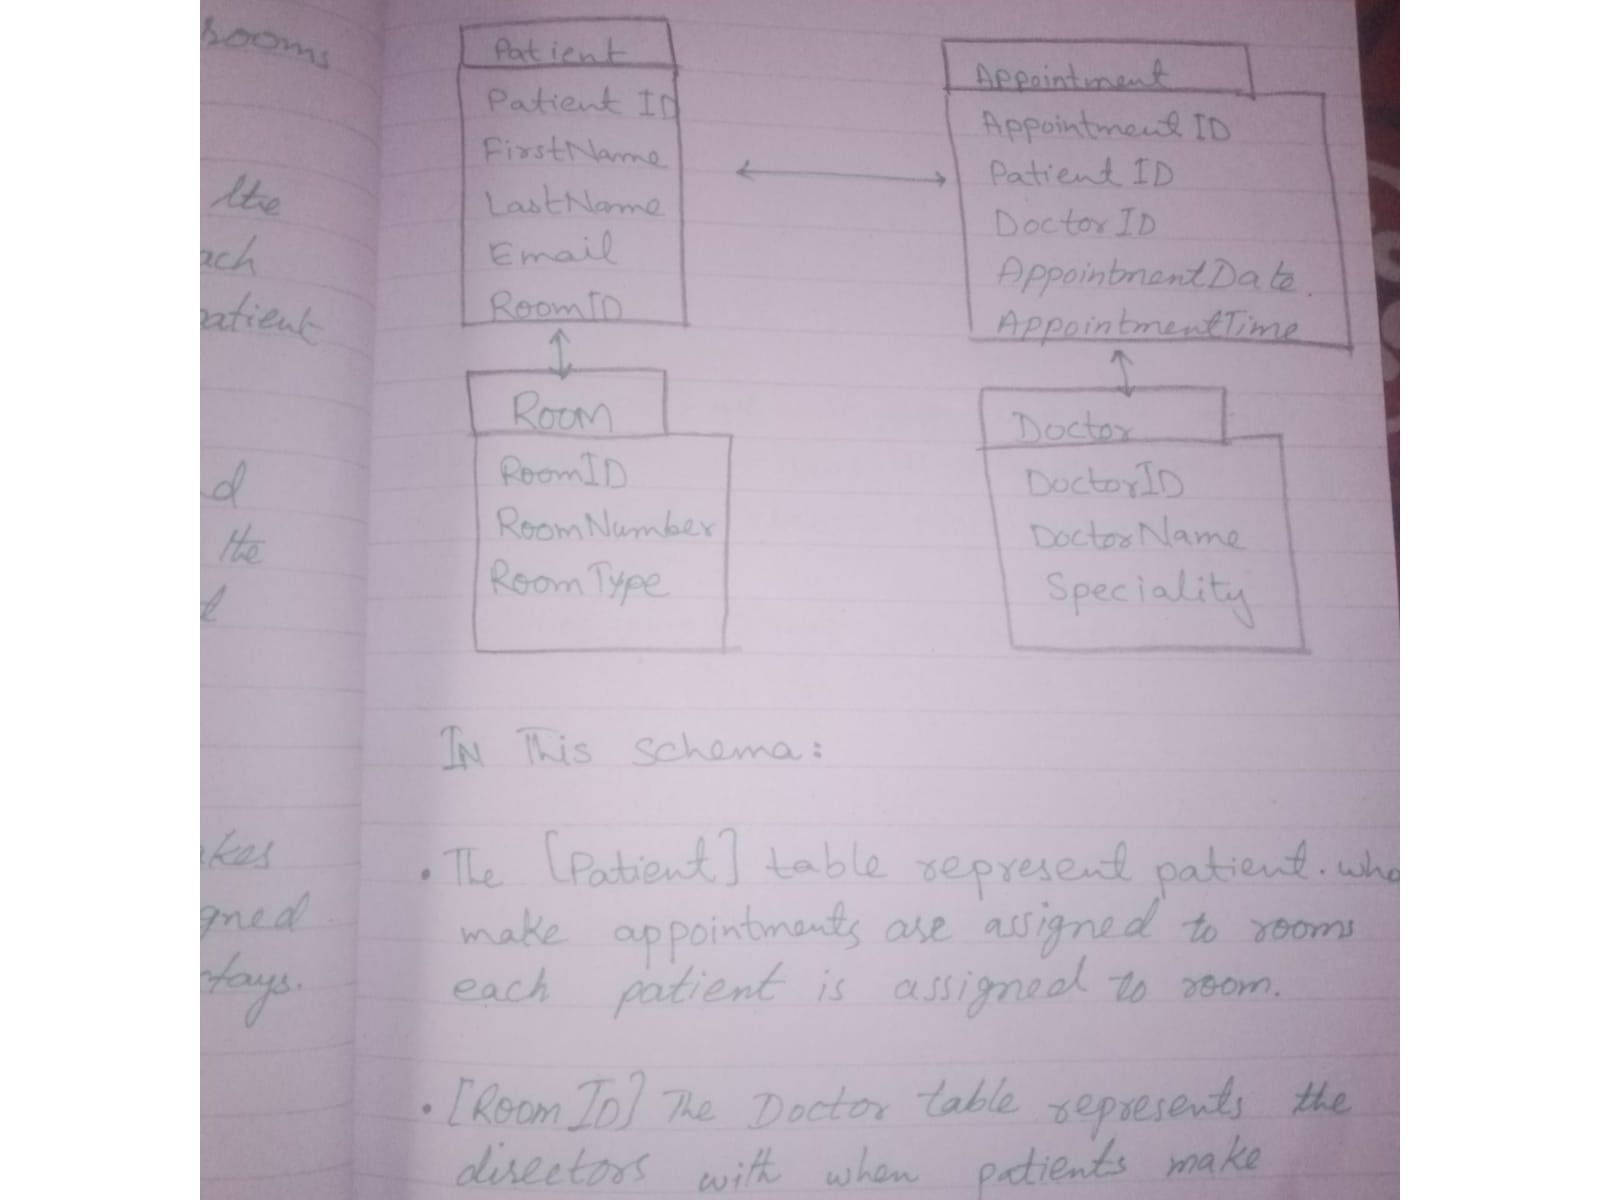 rooms
the
ach
patient
d
the
l
kes
gned
stays.
Patient
Patient ID
FirstName
LastName
Email
RoomID
Appointment
Appointment ID
Patient ID
Doctor ID
AppointmentDate.
AppointmentTime
Room
RoomID
RoomNumber
RoomType
Doctor
DoctorID
DoctorName
Speciality
In This Schema:
• The [Patient] table represent patient. who
make appointments are assigned to rooms
each patient is assigned to room.
• [Room ID] The Doctor table represents the
directors with when patients make